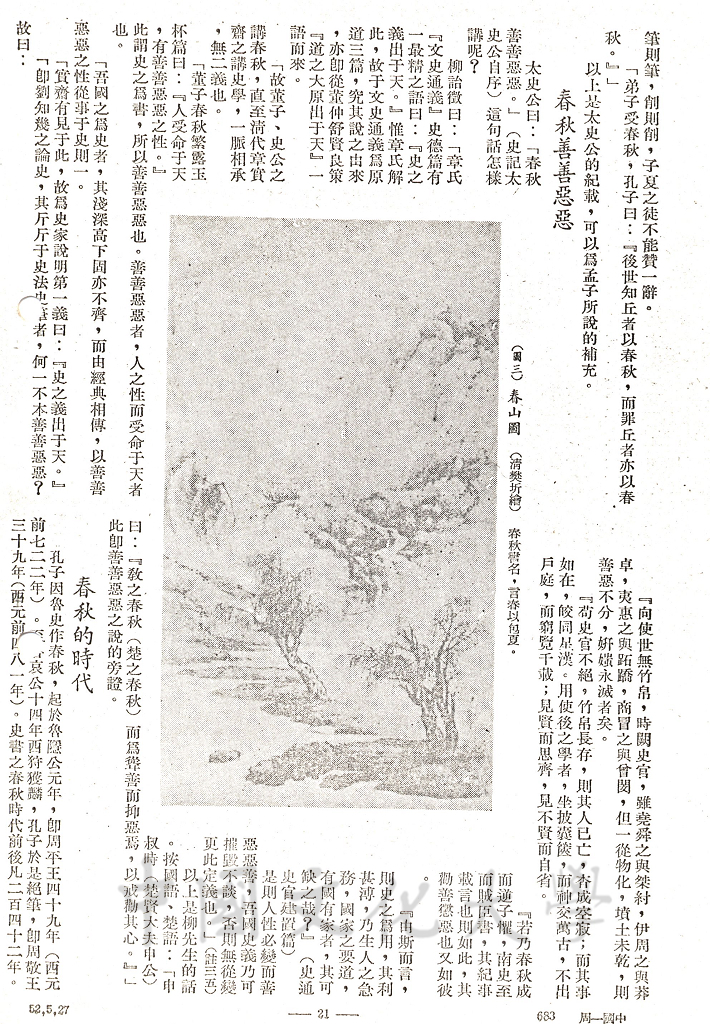 筆則筆，削則削，子夏之徒不能贊一辭。
「弟子受春秋，孔子曰：『後世知丘者以春秋，而罪丘者亦以春
秋。』」
以上是太史公的紀載，可以爲孟子所說的補充。
春秋善善惡惡
太史公曰：「春秋
善善惡惡。」（史記太
史公自序）這句話怎樣
講呢？
柳詒徵曰：「章氏
『文史通義』史德篇有
一最精之語曰：『史之
義出于天。』惟章氏解
此，故于文史通義爲原
道三篇，究其說之由來
，亦卽從董仲舒賢良策
『道之大原出于天』一
語而來。
「故董子、史公之
講春秋，直至清代章實
齋之講史學，一脈相承
，無二義也。
「董子春秋繁露玉
杯篇曰：『人受命于天
，有善善惡惡之性。』
此謂史之爲書，所以善善惡惡也。善善惡惡者，人之性而受命于天者
也。
「吾國之爲史者，其淺深高下固亦不齊，而由經典相傳，以善善
惡惡之性從事于史則一。
「實齋有見于此，故爲史家說明第一義曰：『史之義出于天。』
「卽劉知幾之論史，其斤斤于史法史筆者，何一不本善善惡惡？
故曰：
（圖三）春山圖　（清樊圻繪）　春秋費名，言春以包夏。
『向使世無竹帛，時闕史官，雖堯舜之與桀紂，伊周之與莽
卓，夷惠之與跖蹻，商冒之與曾閔，但一從物化，墳土未乾，則
善惡不分，妍媸永滅者矣。
『苟史官不絕，竹帛長存，則其人已亡，杳成空寂；而其事
如在，皎同星漢。用使後之學者，坐披囊篋，而神交萬古，不出
戶庭，而窮覽千載；見賢而思齊，見不賢而自省。
『若乃春秋成
而逆子懼，南史至
而賊臣書，其紀事
載言也則如此，其
勸善懲惡也又如彼
。
『由斯而言，
則史之爲用，其利
甚溥，乃生人之急
務，國家之要道，
有國有家者，其可
缺之哉？』（史通
史官建置篇）
是則人性必變而善
惡惡善，吾國史義乃可
摧毀不談，否則無從變
更此定義也。」（註三五）
以上是柳先生的話
。按國語、楚語：「申
叔時（楚賢大夫申公）
曰：『敎之春秋（楚之春秋）而爲聳善而抑惡焉，以戒勸其心。』」
此卽善善惡惡之說的旁證。
春秋的時代
孔子因魯史作春秋，起於魯隱公元年，卽周平王四十九年（西元
前七二二年）。至哀公十四年西狩獲麟，孔子於是絕筆，卽周敬王
三十九年（西元前四八一年）。史書之春秋時代前後凡二百四十二年。
52,5,27
— 21 —
683　周一國中
中國文化大學